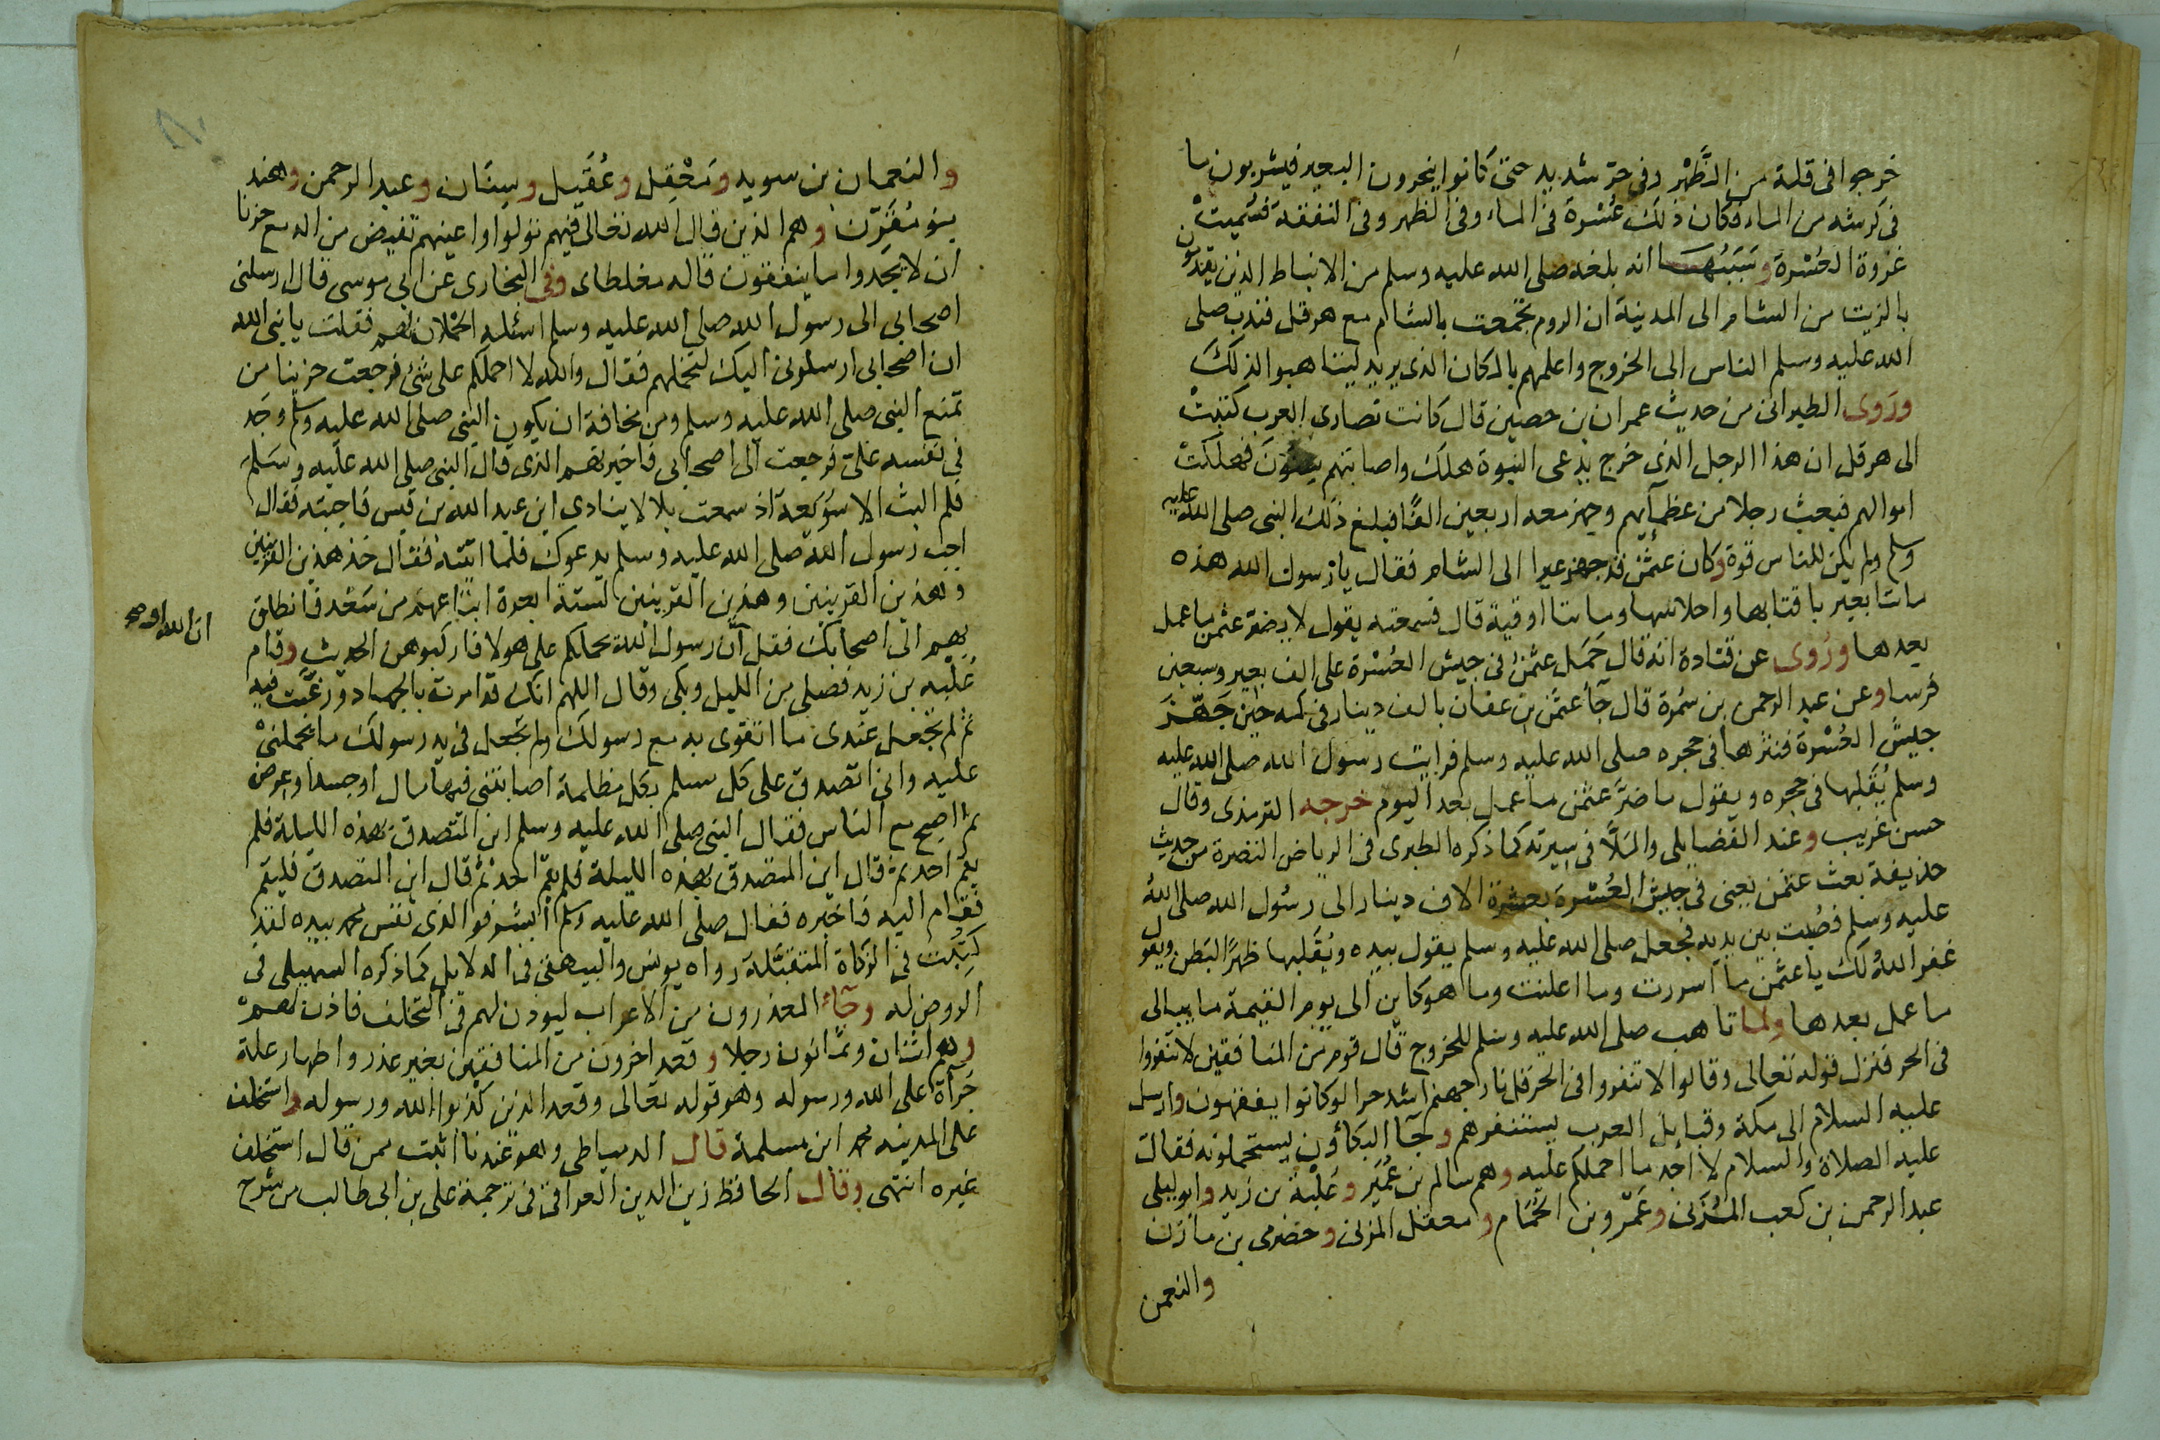 خرجوا فى قلة من الظَّهْر وفى حرّ شديد حتى كانوا ينحرون البعير فيشربون ما
فى كرشه من الماء فكان ذلك عُسْرة فى الماء وفى الظهر وفى النفقة فسُميتْ
غزوة العُسْرة وسَبَبُهَا انه بلغه صلى الله عليه وسلم من الانباط الذين يقدمون
بالزيت من الشام الى المدينة ان الروم تجمعت بالشام مع هرقل فندب صلى
الله عليه وسلم الناس الى الخروج واعلمهم بالمكان الذى يريد ليتاهبوا لذلك
ورَوى الطبرانى من حديث عمران بن حصين قال كانت نصارى العرب كتبتْ
الى هرقل ان هذا الرجل الذى خرج يدعى النبوة هلك واصابتهم سنون فهلكتْ
اموالهم فبعث رجلا من عظمآيهم وجهز معه اربعين الفًا فبلغ ذلك النبى صلى الله عليه
وسلم ولم يكن للناس قوة وكان عثمن قد جهز عيرا الى الشام فقال يا رسول الله هذه
ماتتا بعير باقتابها واحلاسها وماتتا اوقية قال فسمعته يقول لا يضر عثمن ما عمل
بعدها ورُوى عن قتادة انه قال حَمَل عثمن فى جيش العُسْرة على الف بعير وسبعين
فرسا وعن عبد الرحمن بن سَمُرة قال جآ عثمن بن عفان بالف دينار فى كمه حين جَهَّزَ
جيشَ العُسْرة فنثرها فى حجره صلى الله عليه وسلم فرايت رسول الله صلى الله عليه
وسلم يُقَلبها فى حجره ويقول ما ضرَّ عثمن ما عمل بعد اليوم خرجه الترمذى وقال
حسن غريب وعند الفضايلى والمَلَّا فى سيرته كما ذكره الطبرى فى الرياض النضرة من حديث
حذيفة بعث عثمن يعنى فى جيش العُسْرة بعشرة الاف دينار الى رسُول الله صلى اللهُ
عليه وسلم فصُبت بين يديه فجعل صلى الله عليه وسلم يقول بيده ويُقَلبها ظهرًا لبَطن ويقول
غفر اللهُ لكَ يا عثمن ما اسررت وما اعلنت وما هو كاين الى يوم القيمة ما يبالى
ما عمل بعدها ولما تاهب صلى الله عليه وسلم للخروج قال قوم من المنافقين لا تنفروا
فى الحر فنزل قوله تعالى وقالوا لا تنفروا فى الحر قل نار جهنم اشد حرا لو كانوا يفقهون وارسل
عليه السلام الى مكة وقبايل العرب يستنفرهم وجآ البَكاؤن يستحملونه فقال
عليه الصلاة والسلام لا اجد ما احملكم عليه وهم سالم بن عُمَير وعُلْبَة بن زيد وابو ليلى
عبد الرحمن بن كعب المُزَنى وعَمْرو بن الحُمَام ومعقل المزنى وحضرمى بن مازن
والنعمن
والنعمان بن سويد ومَعْقِل وعُقَيل وسِنَان وعبد الرحمن وهند
بنو مُقَرِّن وهم الذين قال الله تعالى فيهم تولوا واعينهم تفيض من الدمع حزنا
ان لا يجدوا ما ينفقون قاله مغلطاى وفى البخارى عن ابى موسى قال ارسلنى
اصحابى الى رسول الله صلى الله عليه وسلم اسئله الحُمْلان لهم فقلت يا نبى الله
ان اصحابى ارسلونى اليك لتحملهم فقال والله لا احملكم على شئ فرجعت حزينا من
تمنع النبى صلى الله عليه وسلم ومن مخافة ان يكون النبى صلى الله عليه وسلم وجَد
فى نفسه علىّ فرجعت الى اصحابى فاخبرتهم الذى قال النبى صلى الله عليه وسَلم
فلم البث الا سُوَيعة اذ سمعت بلالا ينادى اين عبد الله بن قيس فاجبته فقال
اجب رسول الله صلى الله عليه وسلم يدعوك فلما اتيته فقال خذ هذين القرينين
وهذين القرينين وهذين القرينين لستة ابعرة ابتاعهم من سَعْد فانطلق
بهم الى اصحابك فقل ان رسول الله يحملكم على هولا فاركبوهن الحديث وقام
ان الله او صح
عُلْبَه بن زيد فصلى من الليل وبكى وقال اللهم انك قد امرت بالجهاد ورغّبت فيه
ثم لم تجعل عندى ما اتقوى به مع رسولك ولم تجعل فى يد رسولك ما يحملنى
عليه وانى اتصدق على كل مسلم بكل مظلمة اصابتنى فيها مال او جسد او عرض
ثم اصبح مع الناس فقال النبى صلى الله عليه وسلم اين المتصدق هذه الليلة فلم
يقم احد ثم قال اين المتصدق بهذه الليلة فلم يقم احد ثم قال اين المتصدق فليقم
فقام اليه فاخبره فقال صلى الله عليه وسلم ابشر فوالذى نفس محمد بيده لقد
كُتِبت فى الزكاة المتقبَّلة رواه يونس والبيهقى فى الدلايل كما ذكره السهيلى فى
الروض له وجآء المعذرون من الاعراب ليوذن لهم فى التخلف فاذن لهمْ
وهم اثنان وثمانون رجلا وقعد اخرون من المنافقين بغير عذر واظهار علة
جَرآة على الله ورسوله وهو قوله تعالى وقعد الذين كذبوا الله ورسوله واستخلف
على المدينه محمد ابن مسلمة قال الدمياطى وهو عندنا اثبت ممن قال استخلف
غيره انتهى وقال الحافظ زين الدين العراقى فى ترجمة على بن ابى طالب من شرح